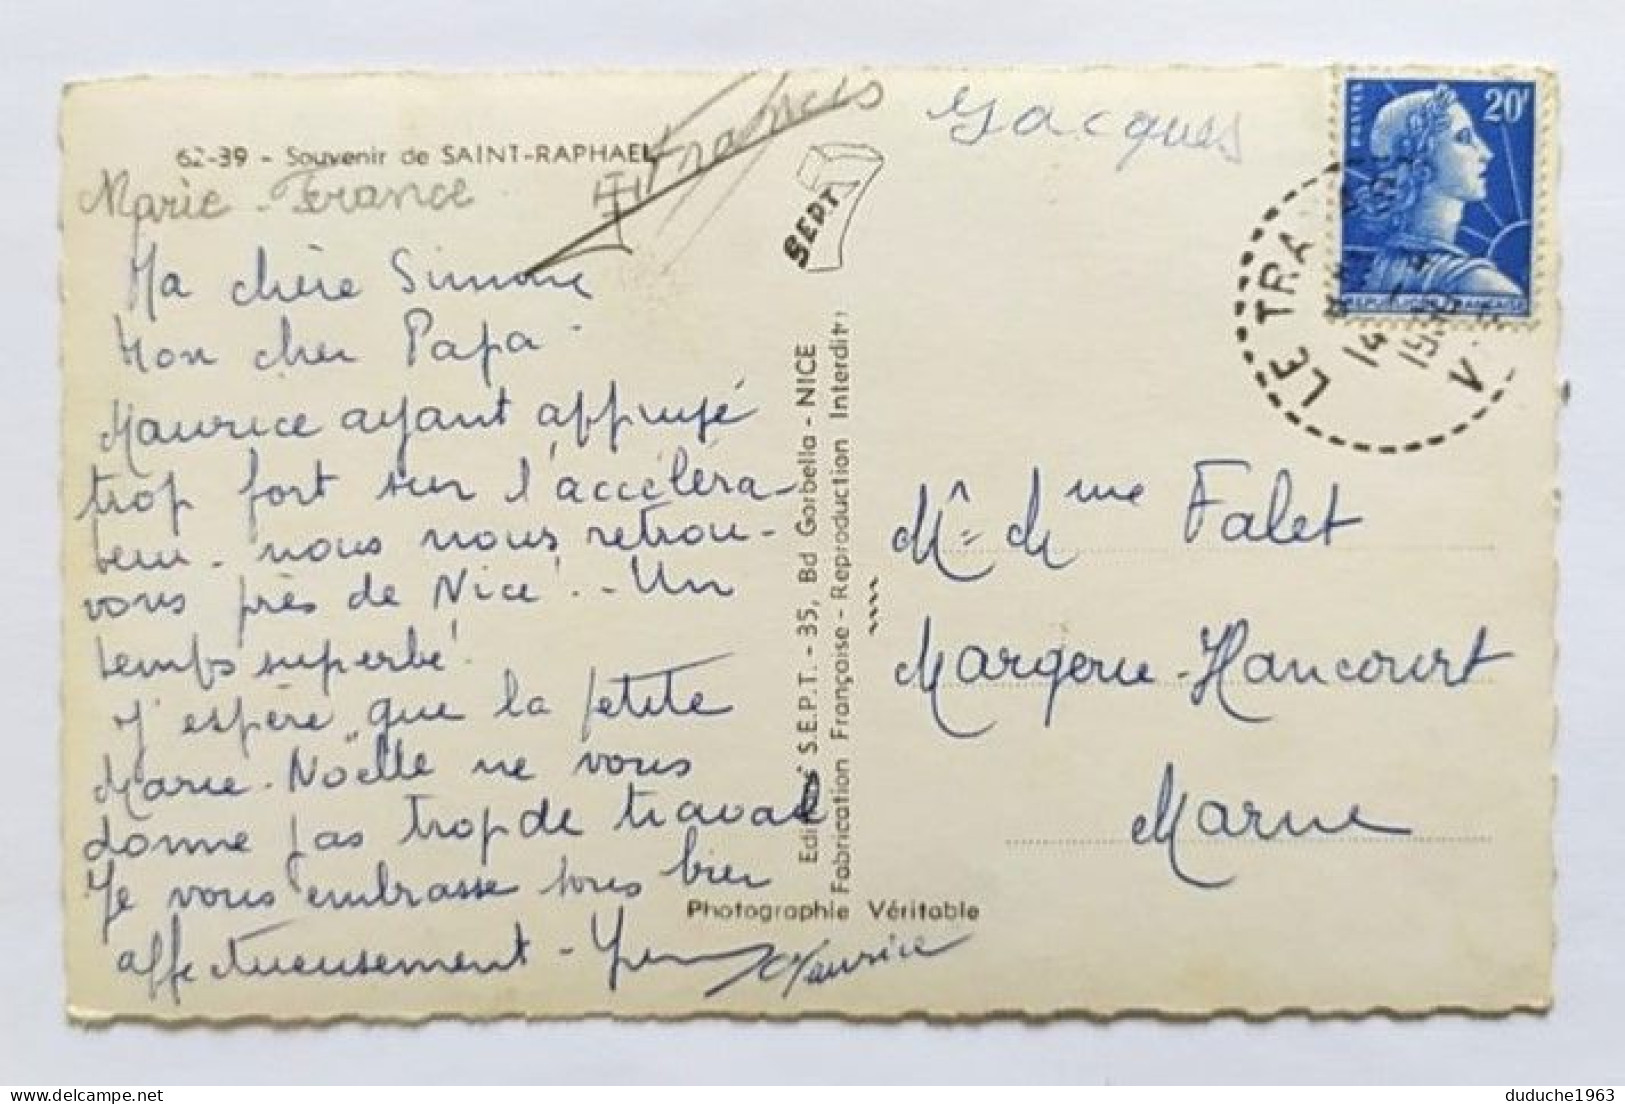 62-39 - Souvenir de SAINT-RAPHAEL
Marie-France
François
Jacques
Ma chère Simone
Mon cher Papa -
Maurice ayant appuyé
trop fort sur l'accéléra-
teur - nous nous retrou-
vons près de Nice! - Un
temps superbe!
J'espère que la petite
Marie-Noëlle ne vous
donne pas trop de travail
Je vous embrasse tous bien
affectueusement -
Maurice
SEPT
S.E.P.T. - 35, Bd Gorbella - NICE
Fabrication Française - Reproduction Interdite
Photographie Véritable
POSTES
20F
REPUBLIQUE FRANÇAISE
LE TRA
14
Mr Mme Falet
Margerie-Hancourt
Marne
duduche1963